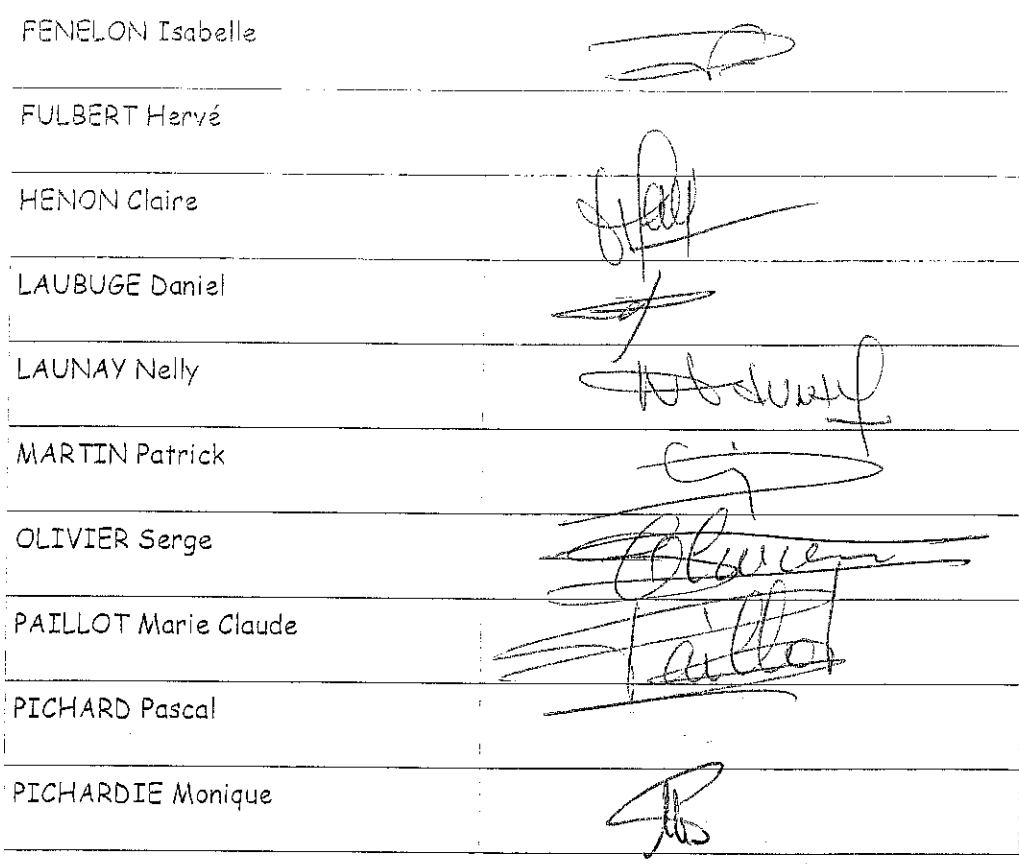 FENELON Isabelle
FULBERT Hervé
HENON Claire
LAUBUGE Daniel
LAUNAY Nelly
MARTIN Patrick
OLIVIER Serge
PAILLOT Marie Claude
Paillot
PICHARD Pascal
PICHARDIE Monique